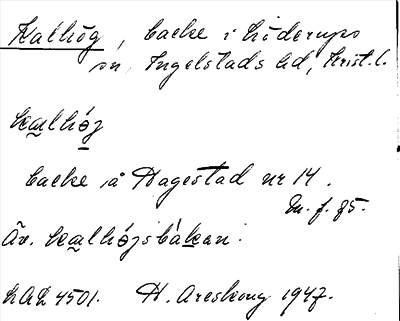 Kalhög, backe i Löderups
sn, Ingelstads hd, Krist. l.
kalhög
backe på Hagestad nr 14.
m. f. 85.
Äv. kalhögsbakan.
LAL 4501. H. Areskoug 1947.